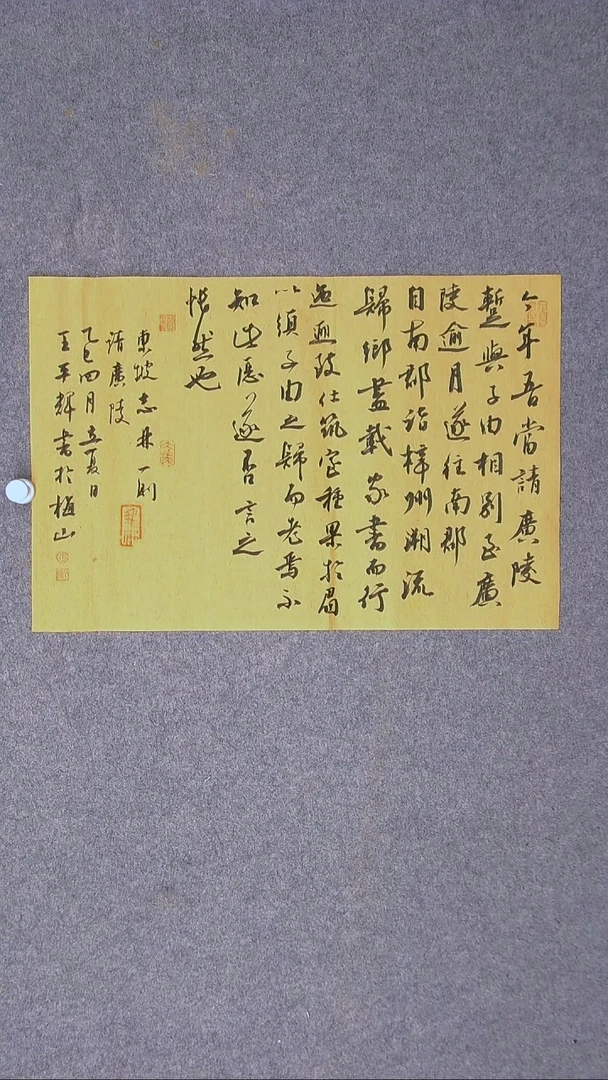 今年吾當請廣陵
暫與子由相別至廣
陵逾月遂往南郡
自南郡詣梓州溯流
歸鄉盡載家書而行
迤邐致仕築室種果於眉
以須子由之歸而老焉不
知此愿遂否言之
悵然也
東坡志林一則
請廣陵
乙巳四月立夏日
王平輝書於梅山